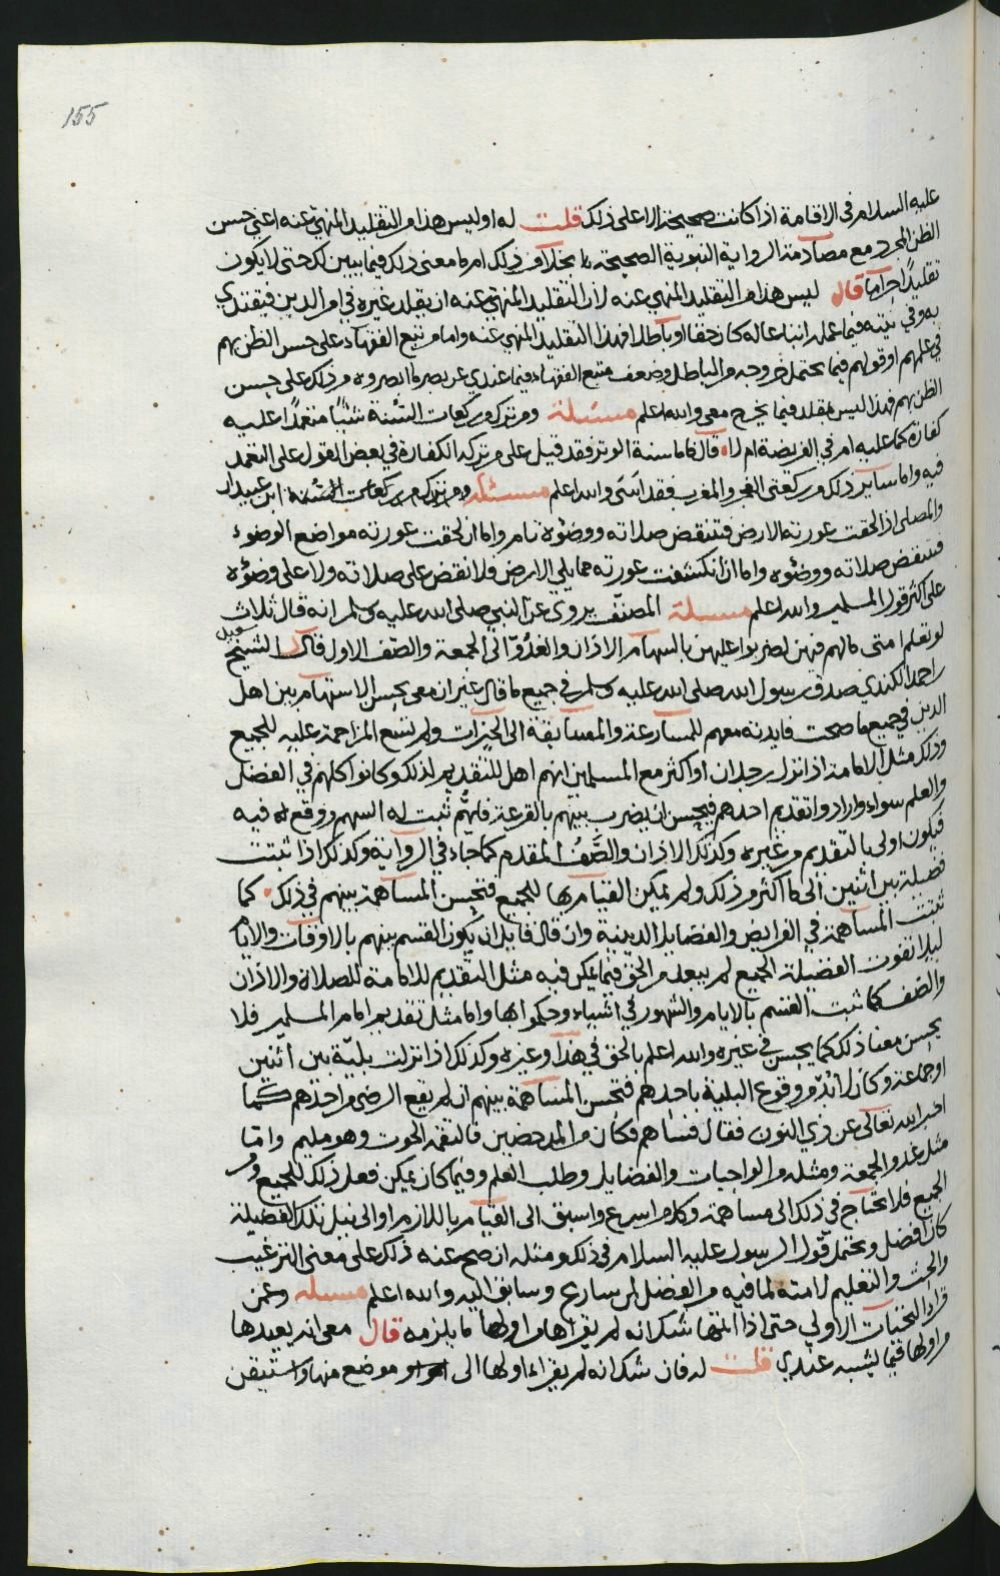 155
عليه السلام في الاقامة اذا كانت صحيحة الا على ذلك قلت له اوليس هذا من التقليد المنهي عنه اعني حسن
الظن المجرد مع مصادمة الرواية النبوية الصحيحة ما بخلاف ذلك ام ما معنى ذلك فيما يبين لك حتى لا يكون
تقليدًا حراما قال ليس هذا من التقليد المنهي عنه لان التقليد المنهي عنه ان يقلد غيره في امر الدين فيقتدي
به وفي نيته فيما عمله اتباعا له كان حقا او باطلا فهذا التقليد المنهي عنه واما من تتبع الفقهاء على حسن الظن بهم
في علمهم او قولهم فيما يحتمل خروجه من الباطل وضعف متبع الفقهاء فيما عندي عن بصر ما ابصروه من ذلك على حسن
الظن بهم فهذا ليس بمقلد فيما يخرج معي والله اعلم مسئلة ومن ترك من ركعات السُنة شيئًا متعمدًا عليه
كفارة كما عليه ام في الفريضة ام لا قال اما سنة الوتر فقد قيل على من تركه الكفارة في بعض القول على التعمد
فيه واما ساير ذلك من ركعتي الفجر والمغرب فقد اسَى والله اعلم مسئلة ومن ترك من ركعات السنة ابن عبيدان
والمصلي اذا لحقت عورته الارض فتنتقض صلاته ووضوءه تام واما ان لحقت عورته مواضع الوضوء
فتنتقض صلاته ووضوءه واما ان انكشفت عورته مما يلي الارض فلا نقض على صلاته ولا على وضوءه
على اكثر قول المسلمين والله اعلم مسئلة المصنّف يروى عن النبي صلى الله عليه وسلم انه قال ثلاث
لو تعلم امتي مالهم فيهن لضربوا عليهن بالسهام الاذان والغدُوّ الى الجمعة والصّف الاول قال الشيخ سعيد
بن احمد الكندي صدق رسول الله صلى الله عليه وسلم في جميع ما قال غير ان معي يحسن الاستهام بين اهل
الدين في جميع ما صحت فايدته معهم للمسارعة والمسابقة الى الخيرات ولم تتسع المزاحمة عليه للجميع
وذلك مثل الامامة اذا نزل رجلان او اكثر مع المسلمين انهم اهل للتقديم لذلك وكانوا كلهم في الفضل
والعلم سواء وارادوا تقديم احدهم فيحسن ان يضرب بينهم بالقرعة فايّهم ثبت له السهم ووقع له فيه
فيكون اولى بالتقديم من غيره وكذلك الاذان والصّف المقدم كما جاء في الرواية وكذلك اذا ثبتت
فضيلة بين اثنين الى ما اكثر من ذلك ولم يمكن القيام بها للجميع فتحسن المساهمة بينهم في ذلك كما
تثبت المساهمة في الفرايض والفضايل الدينية وان قال قايل ان يكون القسم بينهم بالاوقات والايام
ليلا تفوت الفضيلة الجميع لم يبعد من الحق فيما يمكن فيه مثل التقديم للامامة للصلاة والاذان
والصّف كما ثبت القسم بالايام والشهور في اشياء وحكموا بها واما مثل تقديم امام المسلمين فلا
يحسن معنا ذلك كما يحسن في غيره والله اعلم بالحق في هذا وغيره وكذلك اذا نزلت بليّة بين اثنين
او جماعة وكان لا بُدّ من وقوع البلية باحدهم فتحسن المساهمة بينهم ان لم يقع الرضى من احدهم كما
اخبر الله تعالى عن ذي النون فقال فساهم فكان من المدحضين فالتقمه الحوت وهو مليم واما
مثل غدو الجمعة ومثله من الواجبات والفضايل وطلب العلم وفيما كان يمكن فعل ذلك للجميع ومن
الجميع فلا تحتاج في ذلك الى مساهمة وكل من اسرع واسبق الى القيام باللازم او الى نيل تلك الفضيلة
كان افضل ويحتمل قول الرسول عليه السلام في ذلك ومثله ان صح عنه ذلك على معنى الترغيب
والحث والتعليم لامته لما فيه من الفضل لمن سارع وسابق اليه والله اعلم مسئله وعمن
قرا التحيات الاولى حتى اذا اتمها شك انه لم يقراها من اولها ما يلزمه قال معي انه يعيدها
من اولها فيما يشبه عندي قلت له فان شك انه لم يقراء اولها الى موضع منها واستيقن